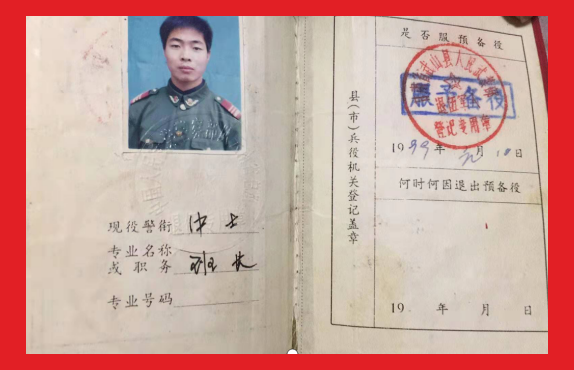 现役警衔 中士
专业名称
或职务 班长
专业号码
县(市)兵役机关登记盖章
是否服预备役
服予备役
登记专用章
1999年 月10日
何时何因退出预备役
19 年 月 日